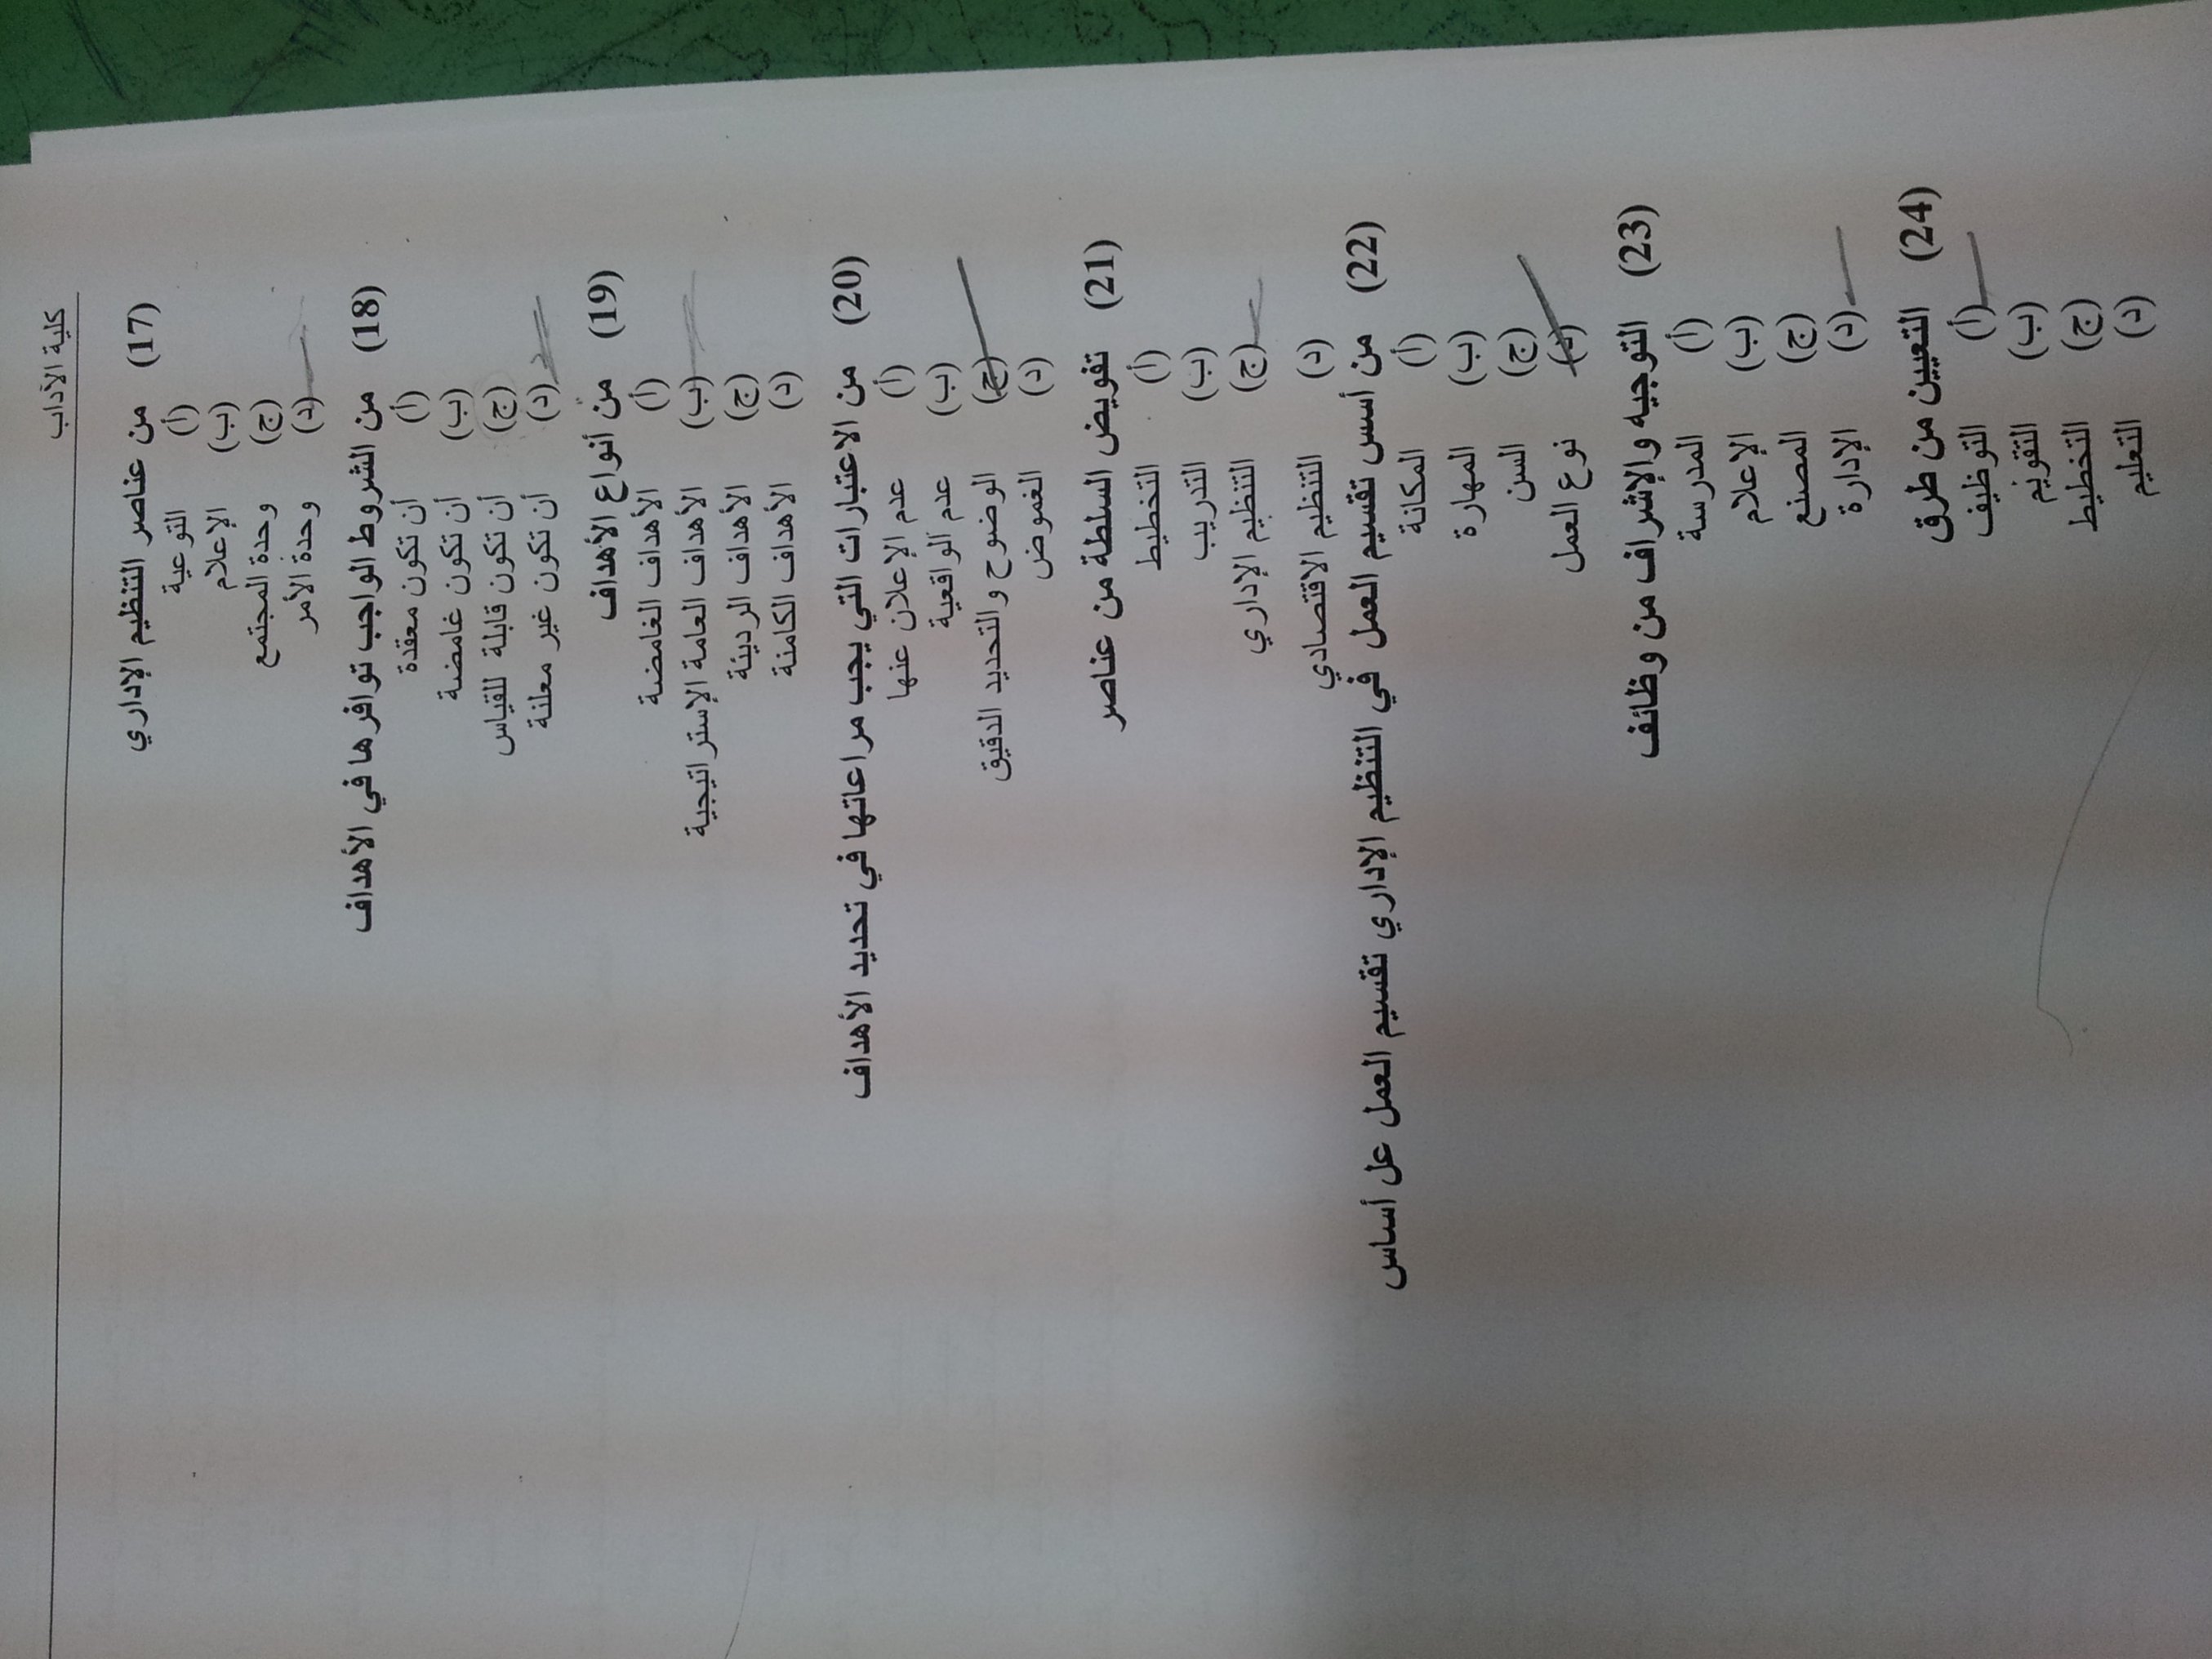 كلية الآداب
(17) من عناصر التنظيم الإداري
(أ) التوعية
(ب) الإعلام
(ج) وحدة المجتمع
(د) وحدة الأمر
(18) من الشروط الواجب توافرها في الأهداف
(أ) أن تكون معقدة
(ب) أن تكون غامضة
(ج) أن تكون قابلة للقياس
(د) أن تكون غير معلنة
(19) من أنواع الأهداف
(أ) الأهداف الغامضة
(ب) الأهداف العامة الإستراتيجية
(ج) الأهداف الرديئة
(د) الأهداف الكامنة
(20) من الاعتبارات التي يجب مراعاتها في تحديد الأهداف
(أ) عدم الإعلان عنها
(ب) عدم الواقعية
(ج) الوضوح والتحديد الدقيق
(د) الغموض
(21) تفويض السلطة من عناصر
(أ) التخطيط
(ب) التدريب
(ج) التنظيم الإداري
(د) التنظيم الاقتصادي
(22) من أسس تقسيم العمل في التنظيم الإداري تقسيم العمل عل أساس
(أ) المكانة
(ب) المهارة
(ج) السن
(د) نوع العمل
(23) التوجيه والإشراف من وظائف
(أ) المدرسة
(ب) الإعلام
(ج) المصنع
(د) الإدارة
(24) التعيين من طرق
(أ) التوظيف
(ب) التقويم
(ج) التخطيط
(د) التعليم